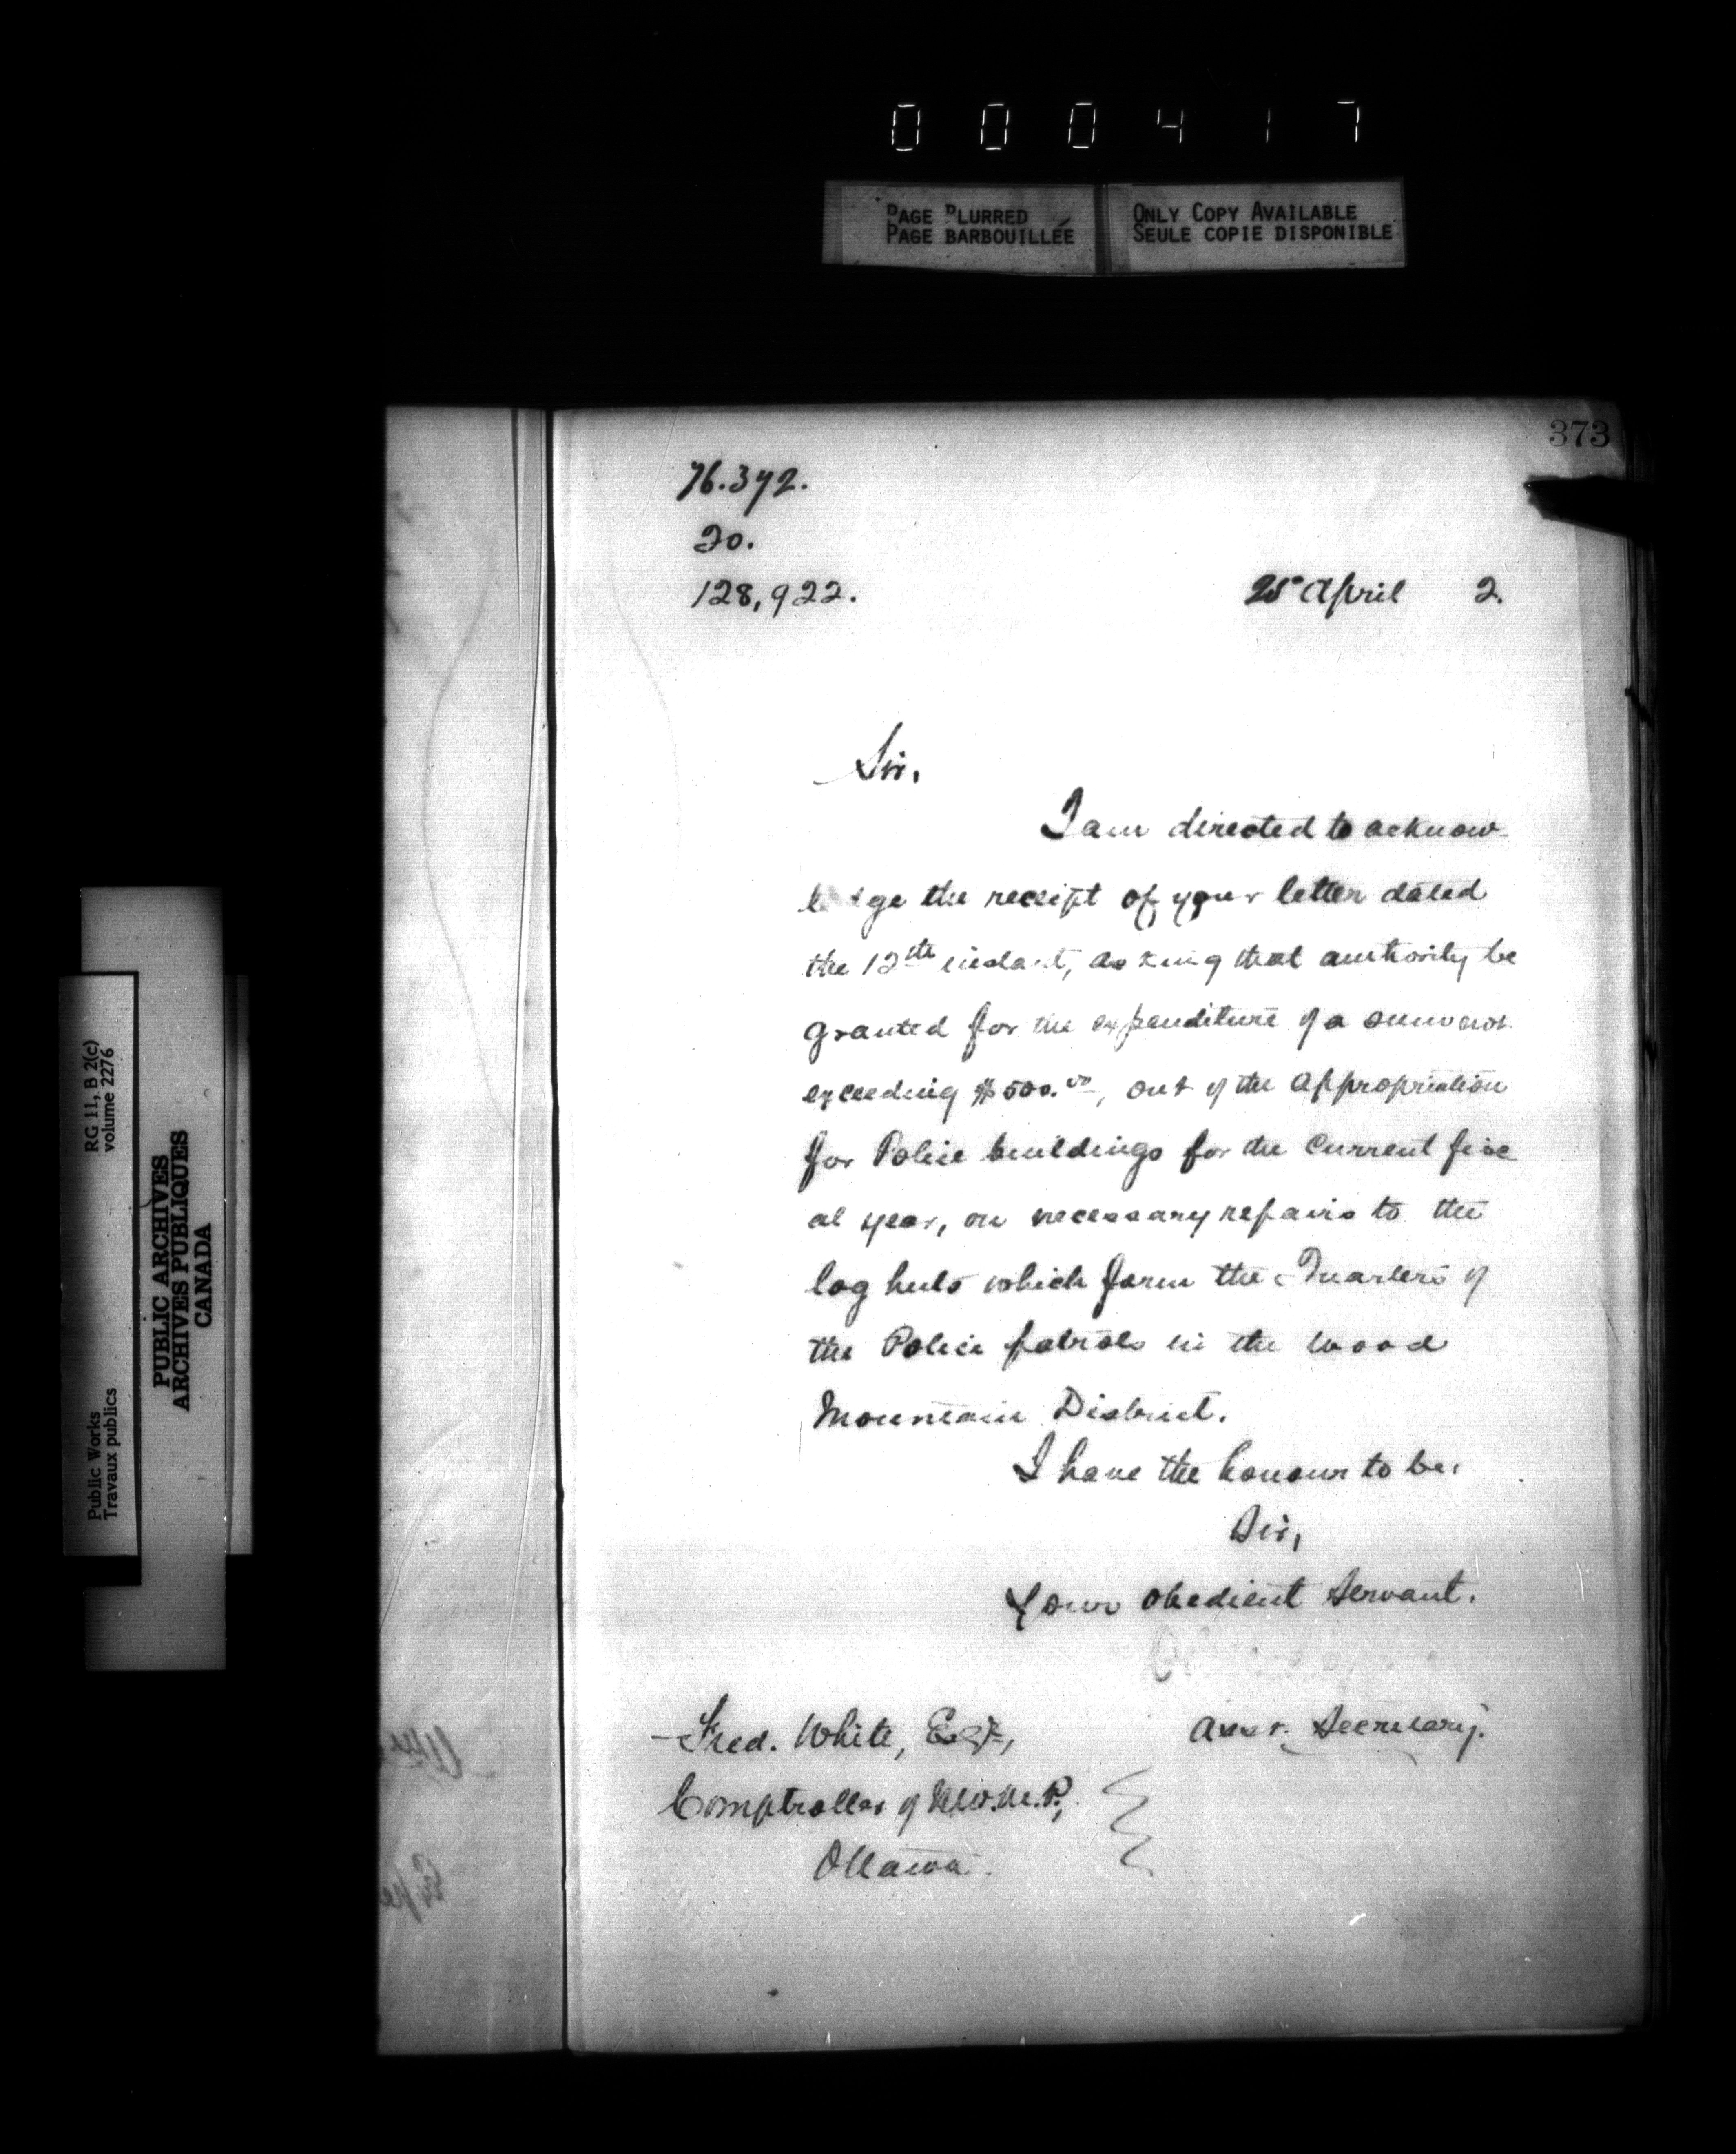 000417
PAGE BLURRED
PAGE BARBOUILLÉE
ONLY COPY AVAILABLE
SEULE COPIE DISPONIBLE
373
76.372.
20.
128,922.
25 April 2.
Sir,
I am directed to acknow-
ledge the receipt of your letter dated
the 12th instant, asking that authority be
granted for the expenditure of a sum not
exceeding $500.00, out of the Appropriation
for Police buildings for the Current fisc
al year, on necessary repairs to the
log huts which form the Quarters of
the Police patrols in the Wood
Mountain District.
I have the honour to be,
Sir,
Your obedient Servant.
Asst. Secretary.
Fred. White, Esq.,
Comptroller of N.W.M.P.,
Ottawa.
RG 11, B 2(c)
volume 2276
Public Works
Travaux publics
PUBLIC ARCHIVES
ARCHIVES PUBLIQUES
CANADA